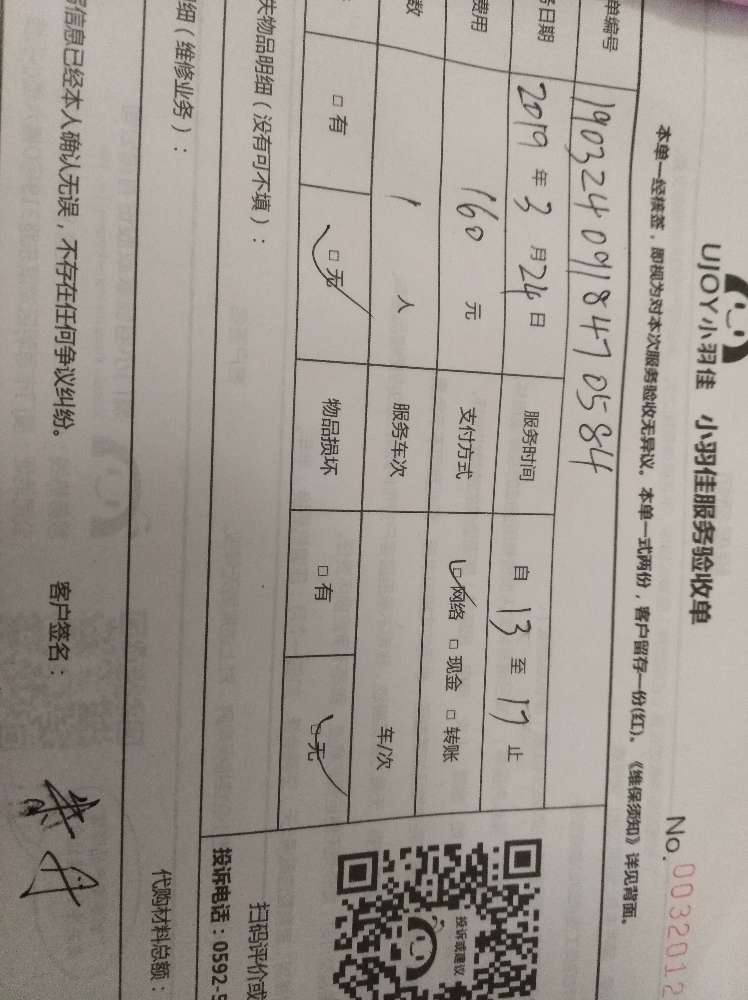 UJOY小羽佳 小羽佳服务验收单
No.0032012
本单一经核签，即视为对本次服务验收无异议。本单一式两份，客户留存一份(红)。《维保须知》详见背面。
单编号 1903240918470584
务日期 2019 年 3 月 24 日 服务时间 自 13 至 17 止
费用 160 元 支付方式 □网络 □现金 □转账
数 1 人 服务车次 车/次
□有 □无 物品损坏 □有 □无
失物品明细（没有可不填）：
投诉或建议
扫码评价或
投诉电话：0592-5
细（维修业务）：
代购材料总额：
信息已经本人确认无误，不存在任何争议纠纷。 客户签名：